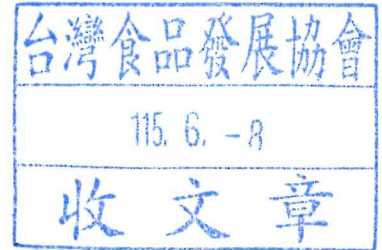 台灣食品發展協會
115. 6. -8
收文章